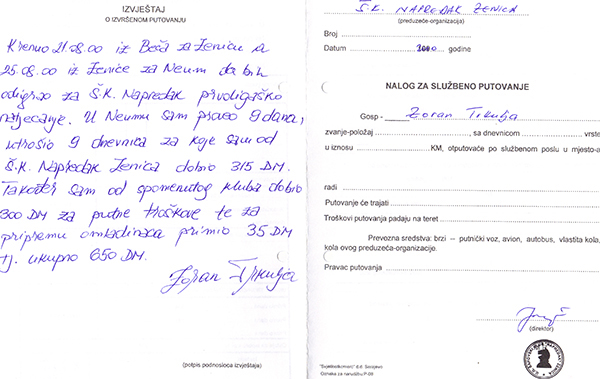 IZVJEŠTAJ
O IZVRŠENOM PUTOVANJU
Krenuo 21.08.00 iz Beča za Zenicu a
25.08.00 iz Zenice za Neum da bih
odigrao za Š.K. Napredak prvoligaško
natjecanje. U Neumu sam proveo 9 dana,
utrošio 9 dnevnica za koje sam od
Š.K. Napredak Zenica dobio 315 DM.
Također sam od spomenutog kluba dobio
300 DM za putne troškove te za
pripremu omladinaca primio 35 DM
tj. ukupno 650 DM.
Zoran Trkulja
(potpis podnosioca izvještaja)
Š.K. NAPREDAK ZENICA
(preduzeće-organizacija)
Broj
Datum 2000 godine
NALOG ZA SLUŽBENO PUTOVANJE
Gosp - Zoran Trkulja
zvanje-položaj , sa dnevnicom vrste
u iznosu KM, otputovaće po službenom poslu u mjesto-a
radi
Putovanje će trajati
Troškovi putovanja padaju na teret
Prevozna sredstva: brzi – putnički voz, avion, autobus, vlastita kola,
kola ovog preduzeća-organizacije.
Pravac putovanja
(direktor)
"Svjetlostkomerc" d.d. Sarajevo
Oznaka za narudžbu P-09